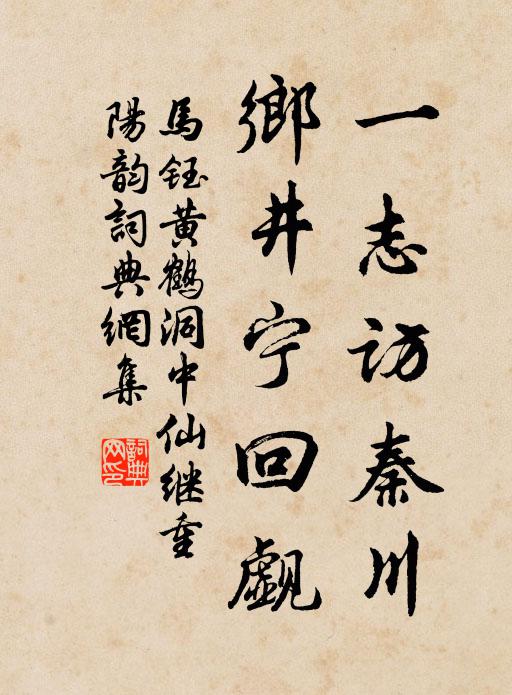 一志访秦川
鄉井宁回觑
馬钰黄鹤洞中仙继重
陽韵詞典網集
詞典
网印